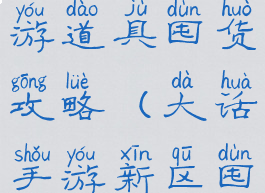 yóu dào jù dùn huò
游道具囤货
gōng lüè dà huà
攻略(大话
shǒu yóu xīn qū dùn
手游新区囤